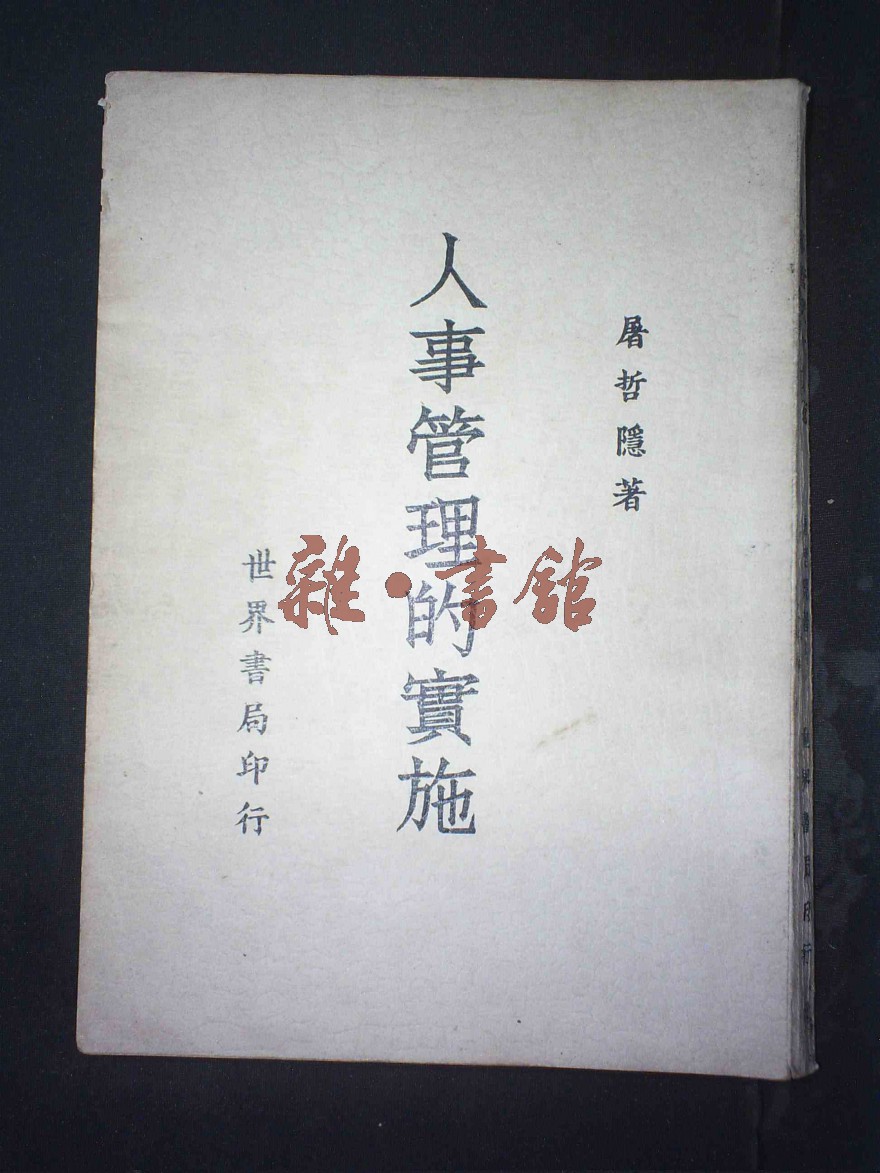 屠哲隱著
人事管理的實施
世界書局印行
雜·書館
世界書局印行